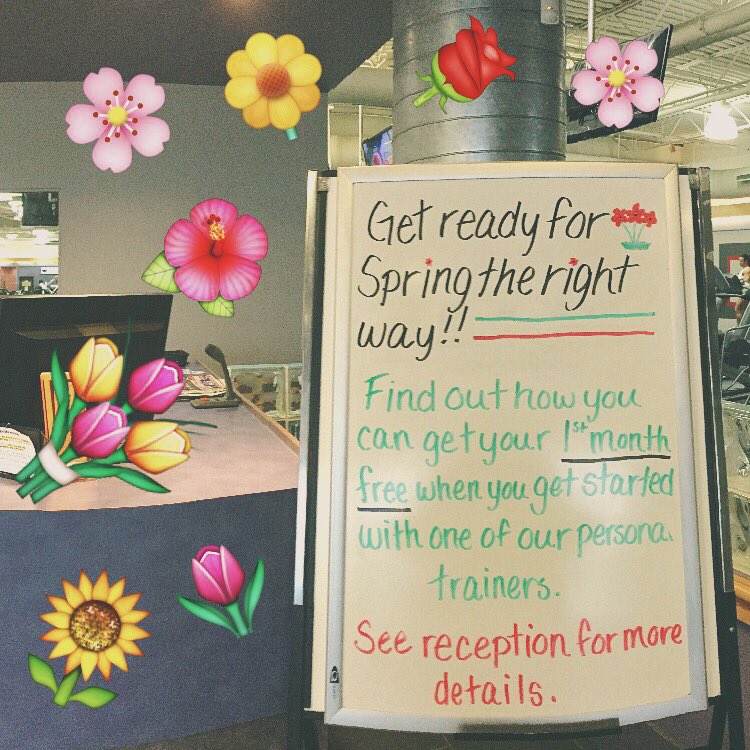 Get ready for
Spring the right
way!!
Find out how you
can get your 1st month
free when you get started
with one of our personal
trainers.
See reception for more
details.